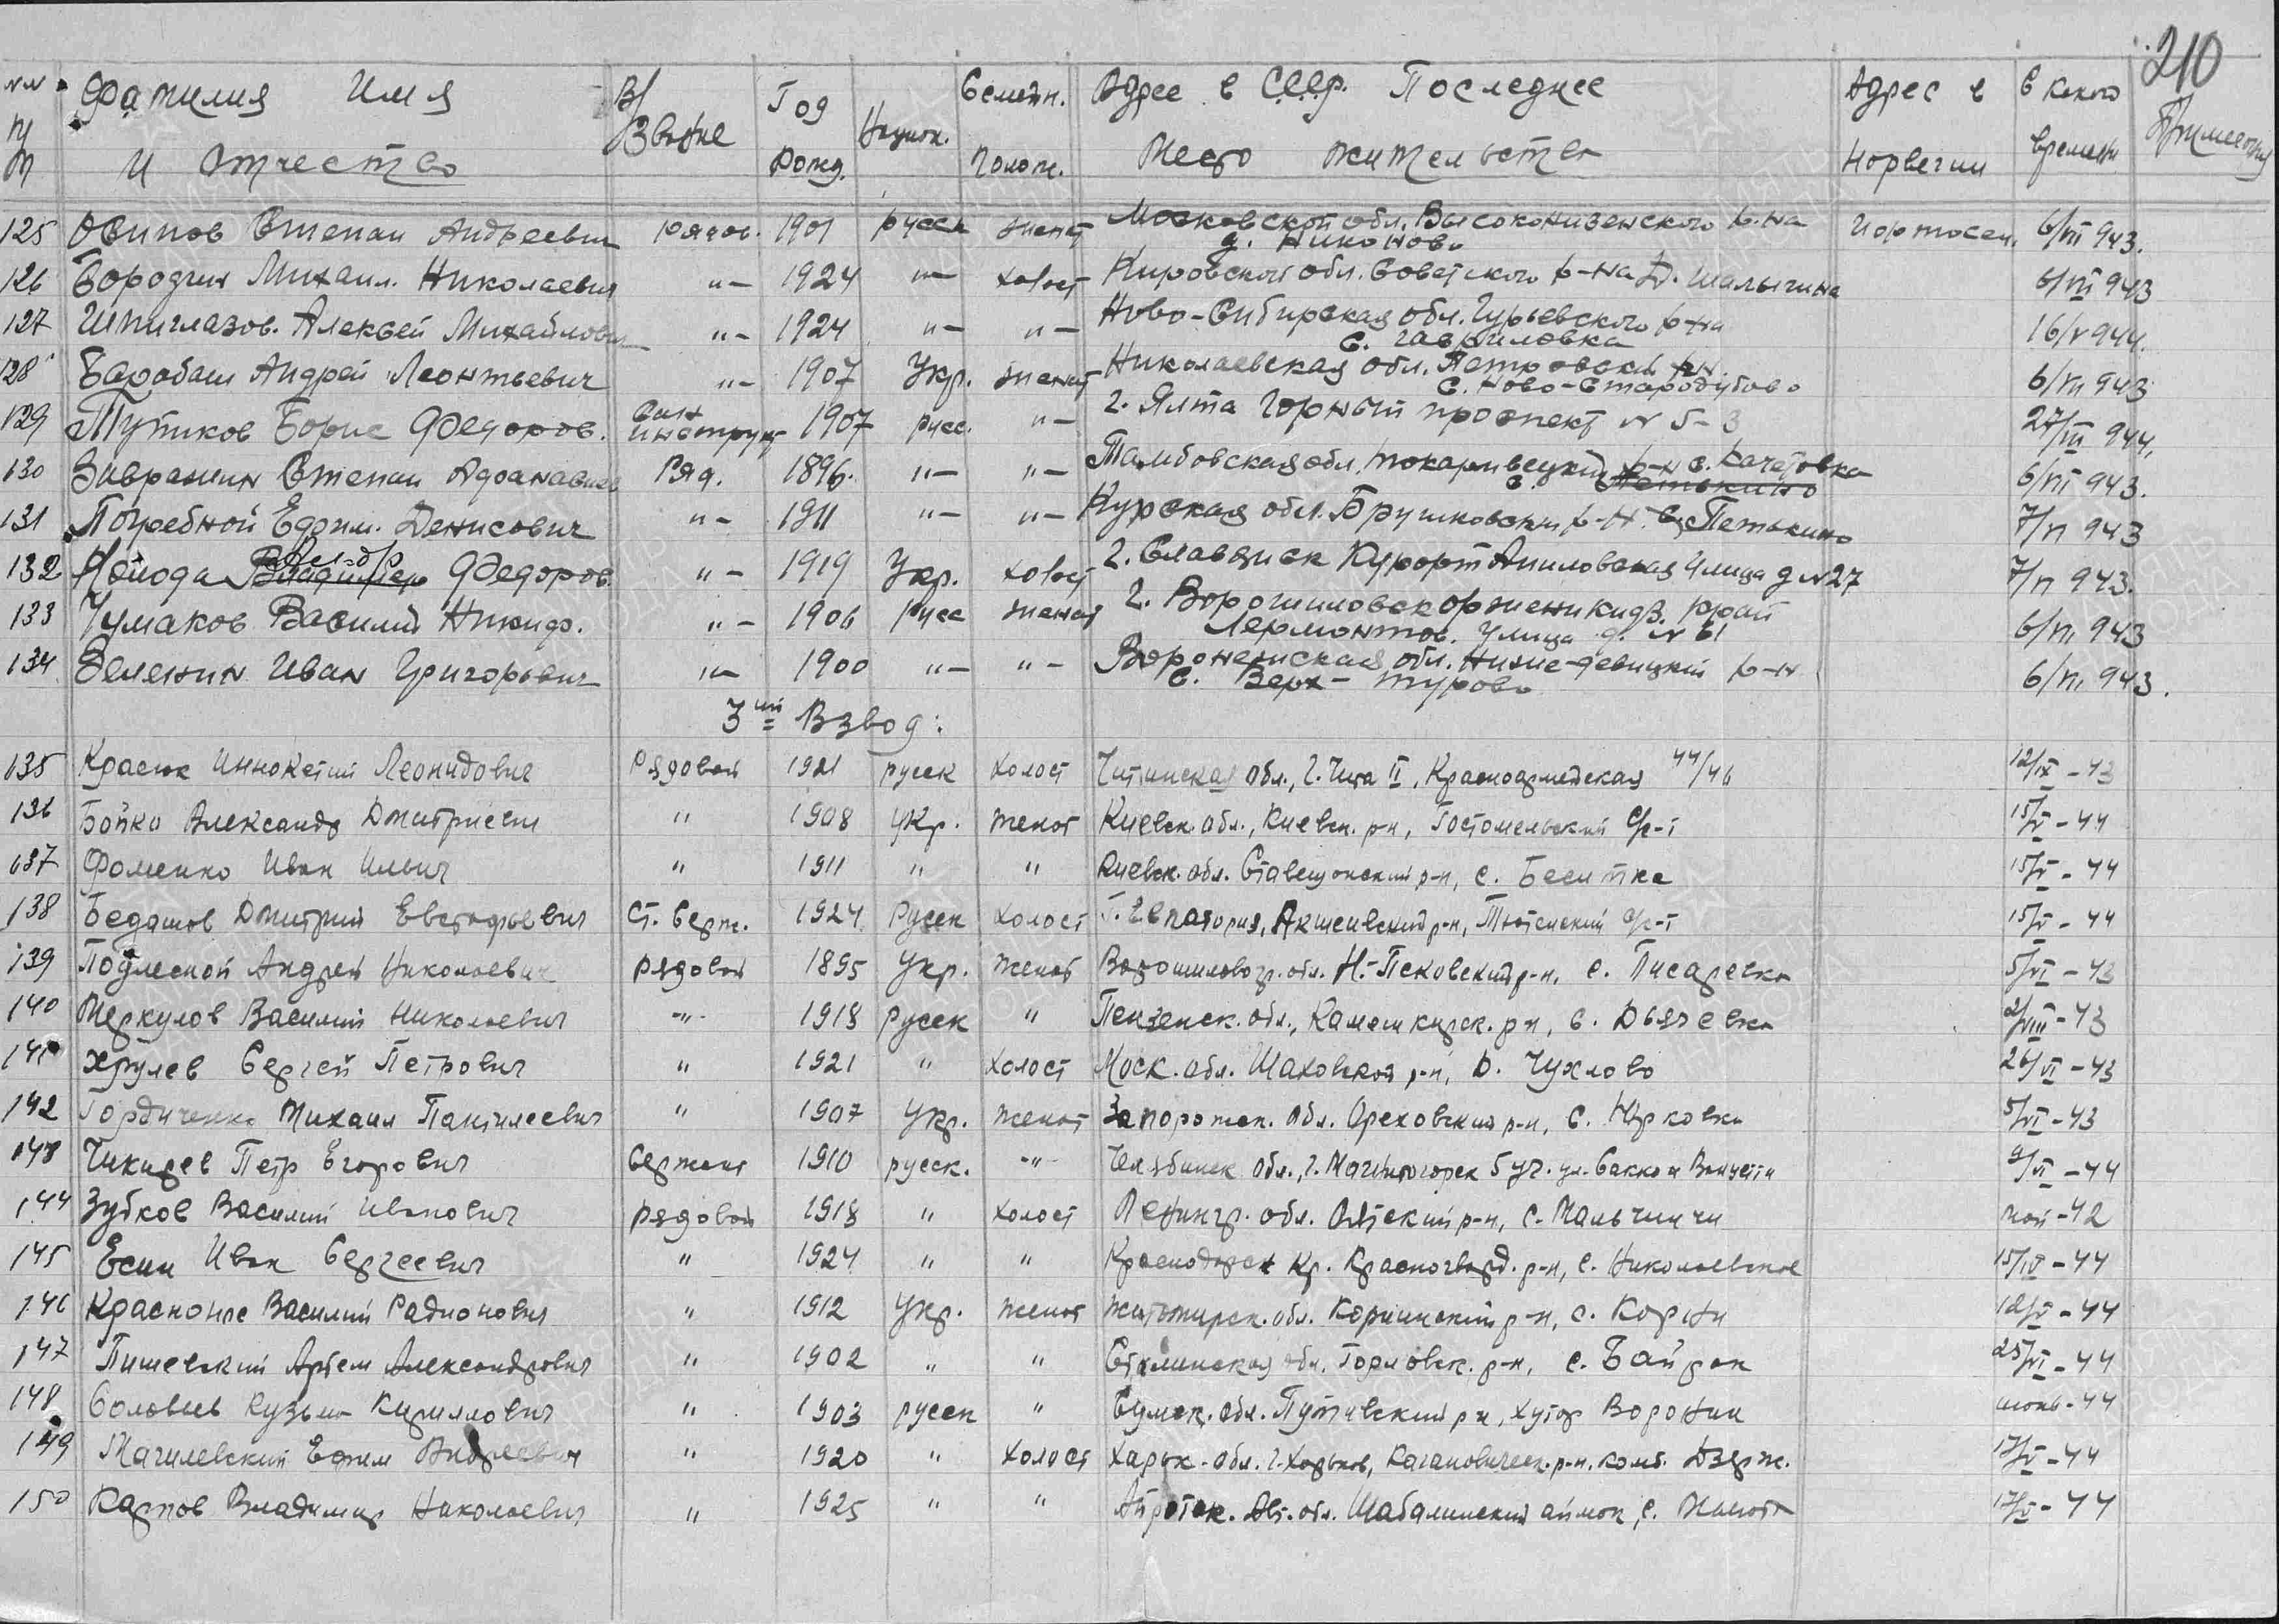 210
№№ п/п Фамилия Имя и Отчество В/Звание Год рожд. Национ. Семейн. полож. Адрес в С.С.С.р. Последнее место жительства Адрес в Норвегии С какого времени Примечания
125 Осипов Степан Андреевич рядов. 1901 русск женат Московской обл. Высоконизенского р-на Иортосен. 6/VII 943.
д. Никоново
126 Бородин Михаил. Николаевич "- 1924 "- холост Кировской обл. Советского р-на д. Шалыгина 6/VII 943
127 Шпиглазов. Алексей Михайлович "- 1924 "- "- Ново-Сибирская обл. Гурьевского р-на 16/V 944.
с. Гавриловка
128 Барабаш Андрей Леонтьевич "- 1907 Укр. женат Николаевская обл. Петровский р-н. 6/VII 943
с. Ново-Стародубово
129 Тутиков Борис Федоров. Сан инструкт 1907 русс. "- г. Ялта Горный проспект N 5-3 27/III 944.
130 Завражин Степан Афанасиев Ряд. 1896. "- "- Тамбовская обл. Токаривецкий р-н с. Качетовка 6/VI 943.
с. Петькино
131 Погребной Ефим. Денисович "- 1911 "- "- Курская обл. Брушковский р-н. с. Петькино 7/VI 943
132 Койода Владимер Алек-др Федоров. "- 1919 Укр. холост г. Славянск Курорт Аниловская Улица д N 27 7/VI 943.
133 Чумаков Василий Никиф. "- 1906 Русс женат г. Ворошиловск Орженикидз. край 6/VI, 943
Лермонтов. Улица д. N 61
134 Зеленин Иван Григорьевич "- 1900 "- "- Воронежская обл. Ниже-девицкий р-н 6/VI, 943.
с. Верх-турово
3ий Взвод:
135 Красюк Иннокетий Леонидович Рядовой 1921 русск холост Читинская обл., г. Чита II, Красноармейская 44/46 12/IX-43
136 Бойко Александр Дмитриевич " 1908 Укр. женат Киевск. обл., Киевск. р-н, Гостомельский с/с-т 15/V-44
137 Фоменко Иван Ильич " 1911 " " Киевск. обл. Ставещанский р-н, с. Беситка 15/V-44
138 Бедашов Дмитрий Евстафьевич Ст. Серж. 1924 Русск холост Г. Евпатория, Акшеивский р-н, Тютеиский с/с-т 15/V-44
139 Подлесной Андрей Николаевич рядовой 1895 Укр. женат Ворошиловогр. обл. Н.-Псковский р-н, с. Писаревка 5/VI-43
140 Меркулов Василий Николаевич -"- 1918 русск " Пензенск. обл., Камешкирск. р-н, с. Дьячевка 2/VIII-43
141 Хрулев Сергей Петрович " 1921 " холост Моск. обл. Шаховской р-н, д. Чухлово 26/VI-43
142 Гордиченко Михаил Пантилеевич " 1907 Укр. женат Запорожск. обл. Ореховский р-н, с. Юрковка 5/VI-43
143 Чикирев Петр Егорович Сержант 1910 русск. -"- Челябинск обл., г. Магнитогорск 5 уч. ул. Сакко и Ванцетти 9/VI-44
144 Зубков Василий Иванович рядовой 1918 " холост Ленингр. обл. Оятский р-н, с. Мальчиичи май-42
145 Есин Иван Сергеевич " 1924 " " Краснодарск кр. Красногвард. р-н, с. Николаевское 15/IV-44
146 Красконос Василий Радионович " 1912 Укр. женат Житомирск. обл. Корнинский р-н, с. Корнин 12/V-44
147 Пишевский Артем Александрович " 1902 " " Сталинская обл. Горловск. р-н, с. Байрак 25/VI-44
148 Соловьев Кузьма Кириллович " 1903 русск " Сумск. обл. Путивский р-н, хутор Воронин июнь-44
149 Магилевский Ефим Андреевич " 1920 " холост Харьк. обл. г. Харьков, Кагановическ. р-н. комб. Дзерж. 17/V-44
150 Карпов Владимир Николаевич " 1925 " " Айротск. Авт. обл. Шабалинский аймак, с. 17/V-44